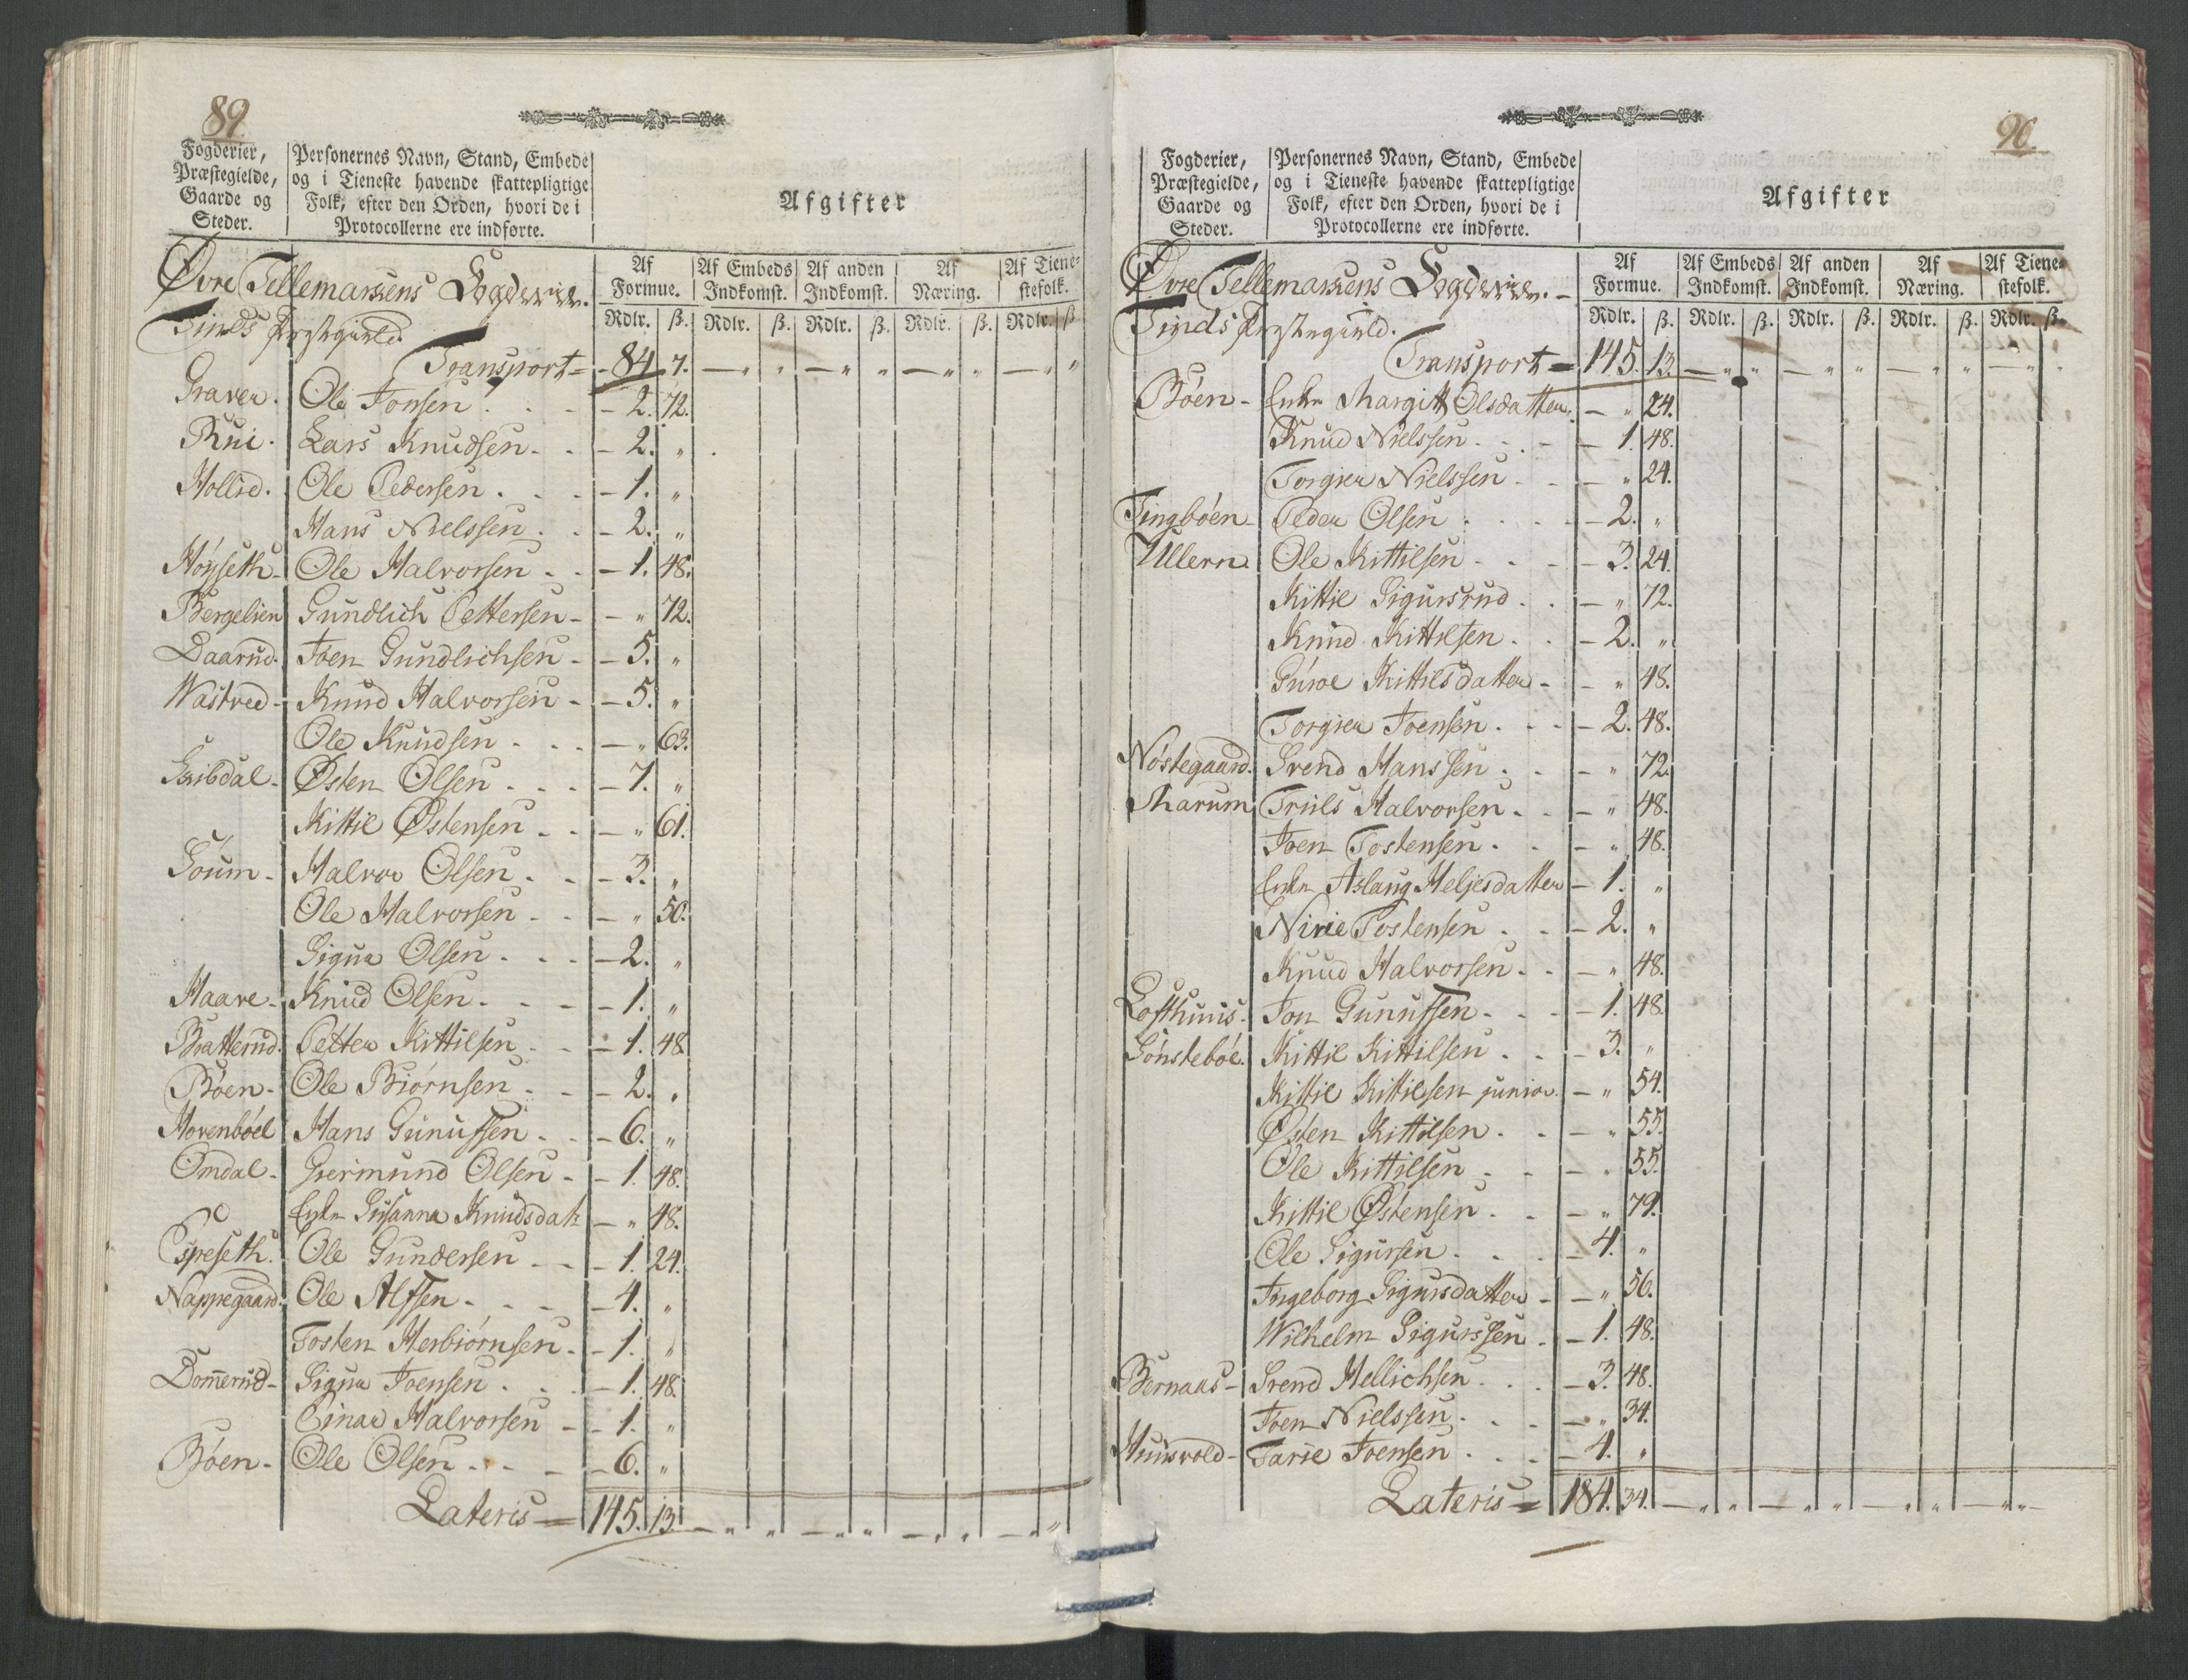 89.
Fogderier, Præstegielde, Gaarde og Steder.
Personernes Navn, Stand, Embede og i Tieneste havende skattepligtige Folk, efter den Orden, hvori de i Protocollerne ere indførte.
Afgifter
Af Formue. Af Embeds Indkomst. Af anden Indkomst. Af Næring. Af Tiene-stefolk.
Rdlr. ß. Rdlr. ß. Rdlr. ß. Rdlr. ß. Rdlr. ß
Øvre Tellemarkens Fogderie.
Tinds Præstegield.
Transport = - 84. 7. — " " — " " — " " — " "
Graver. Ole Jonsen . . - 2. 72.
Rui. Lars Knudsen - . - 2. "
Hollid. Ole Pedersen . . . - 1. "
Hans Nielssen . . - 2. "
Høyseth - Ole Halvorsen - . - 1. 48.
Bergelien Gundlich Pettersen - - " 72.
Daarud. Joen Gundlichsen - - 5. "
Wastved - Knud Halvorsen - - 5. "
Ole Knudsen - . . — " 63.
Østen Olsen . . . - 7. "
Kittil Østensen . . — " 61.
Halvor Olsen . . - 3. "
Ole Halvorsen - . — " 50.
Sigur Olsen . . . - 2. "
Haave - Knud Olsen . - - - 1. "
Bratterud. Petter Kittilsen - - 1. 48
Bøen - Ole Biørnsen - - - 2. "
Hovenbøel Hans Gunufsen . . - 6. "
Omdal - Giermund Olsen - - 1. 48.
Enke Susanna Knudsdatr — " 48.
Espeseth. Ole Gundersen - - - 1. 24.
Nappegaard. Ole Alfsen - . - - 4. "
Tosten Herbiørnsen - - 1. "
Dom̅erud - Sigur Joensen . . - 1. 48.
Einar Halvorsen - - 1. "
Bøen - Ole Olsen - . - - 6. "
Lateris = 145. 13. — " " — " " — " " — " "
90.
Fogderier, Præstegielde, Gaarde og Steder.
Personernes Navn, Stand, Embede og i Tieneste havende skattepligtige Folk, efter den Orden, hvori de i Protocollerne ere indførte.
Afgifter
Af Formue. Af Embeds Indkomst. Af anden Indkomst. Af Næring. Af Tiene-stefolk.
Rdlr. ß. Rdlr. ß. Rdlr. ß. Rdlr. ß. Rdlr. ß.
Øvre Tellemarkens Fogderie. -
Tinds Præstegield.
Transport = 145. 13. — " " — " " — " " — " "
Bøen - Enke Margitt Olsdatter. — " 24.
Knud Nielssen . . - 1. 48.
Torgier Nielssen - - — " 24.
Tingbøen - Peder Olsen . . . - 2. "
Ullern Ole Kittilsen - . - - 3. 24.
Kittil Sigursrud . . — " 72.
Knud Kittilsen . . - 2. "
Guroe Kittilsdatter - - " 48.
Torgier Joensen . . - 2. 48.
Nøstegaard. Svend Hanssen . . - " 72.
Marum Truls Halvorsen . . — " 48.
Joen Tostensen . . - " 48.
Enke Aslaug Heljesdatter - 1. "
Nirie Tostensen . . - 2. "
Knud Halvorsen - . — " 48.
Lofthuus. Jon Gunufsen - . - - 1. 48.
Gønstebøe. Kittil Kittilsen . . - 3. "
Kittil Kittilsen junior. — " 54.
Østen Kittilsen . . — " 55.
Ole Kittilsen - - — " 55.
Kittil Østensen . . — " 79.
Ole Sigursen . . . - 4. "
Ingeborg Sigursdatter - — " 56.
Wilhelm Sigurssen . - 1. 48.
Bernaas - Svend Hellichsen . . - 3. 48.
Joen Nielssen . . — " 34.
Huusvold - Tarie Joensen . . - 4. "
Lateris = 184. 34. — " " — " " — " " — " "